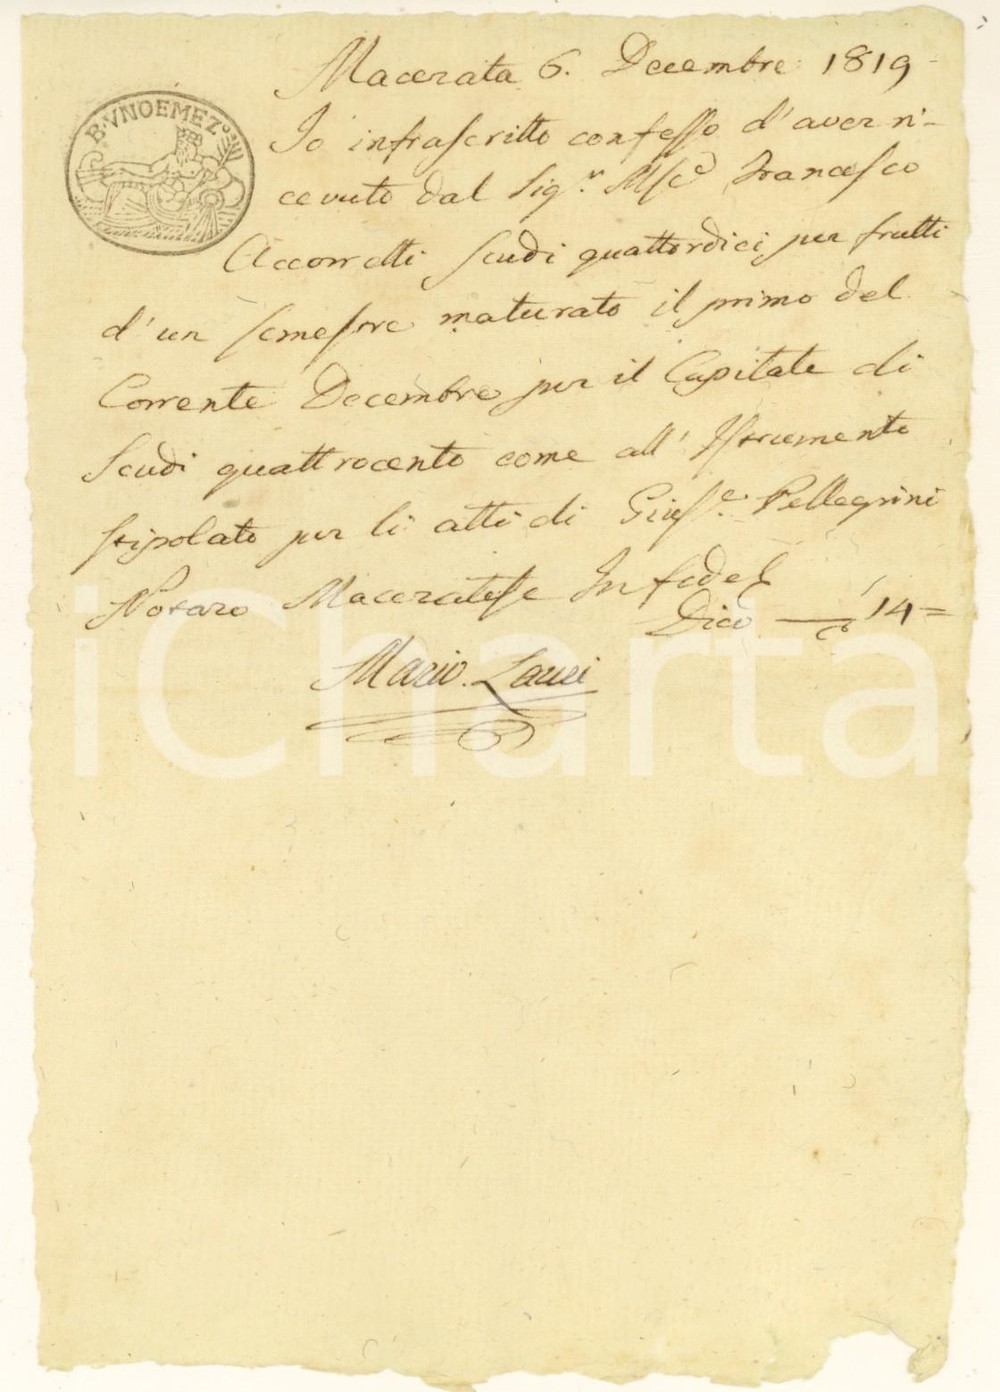 Macerata 6. Decembre 1819
B. VNOEMEZO
Io infrascritto confesso d'aver ri-
cevuto dal Sig.r Mse Francesco
Accorretti scudi quattordici per frutti
d'un semestre maturato il primo del
Corrente Decembre per il Capitale di
Scudi quattrocento come all' Istrumento
stipolato per li atti di Giuse. Pellegrini
Notaro Maceratese In fede
Dico 14=
Mario Lauri
iCharta